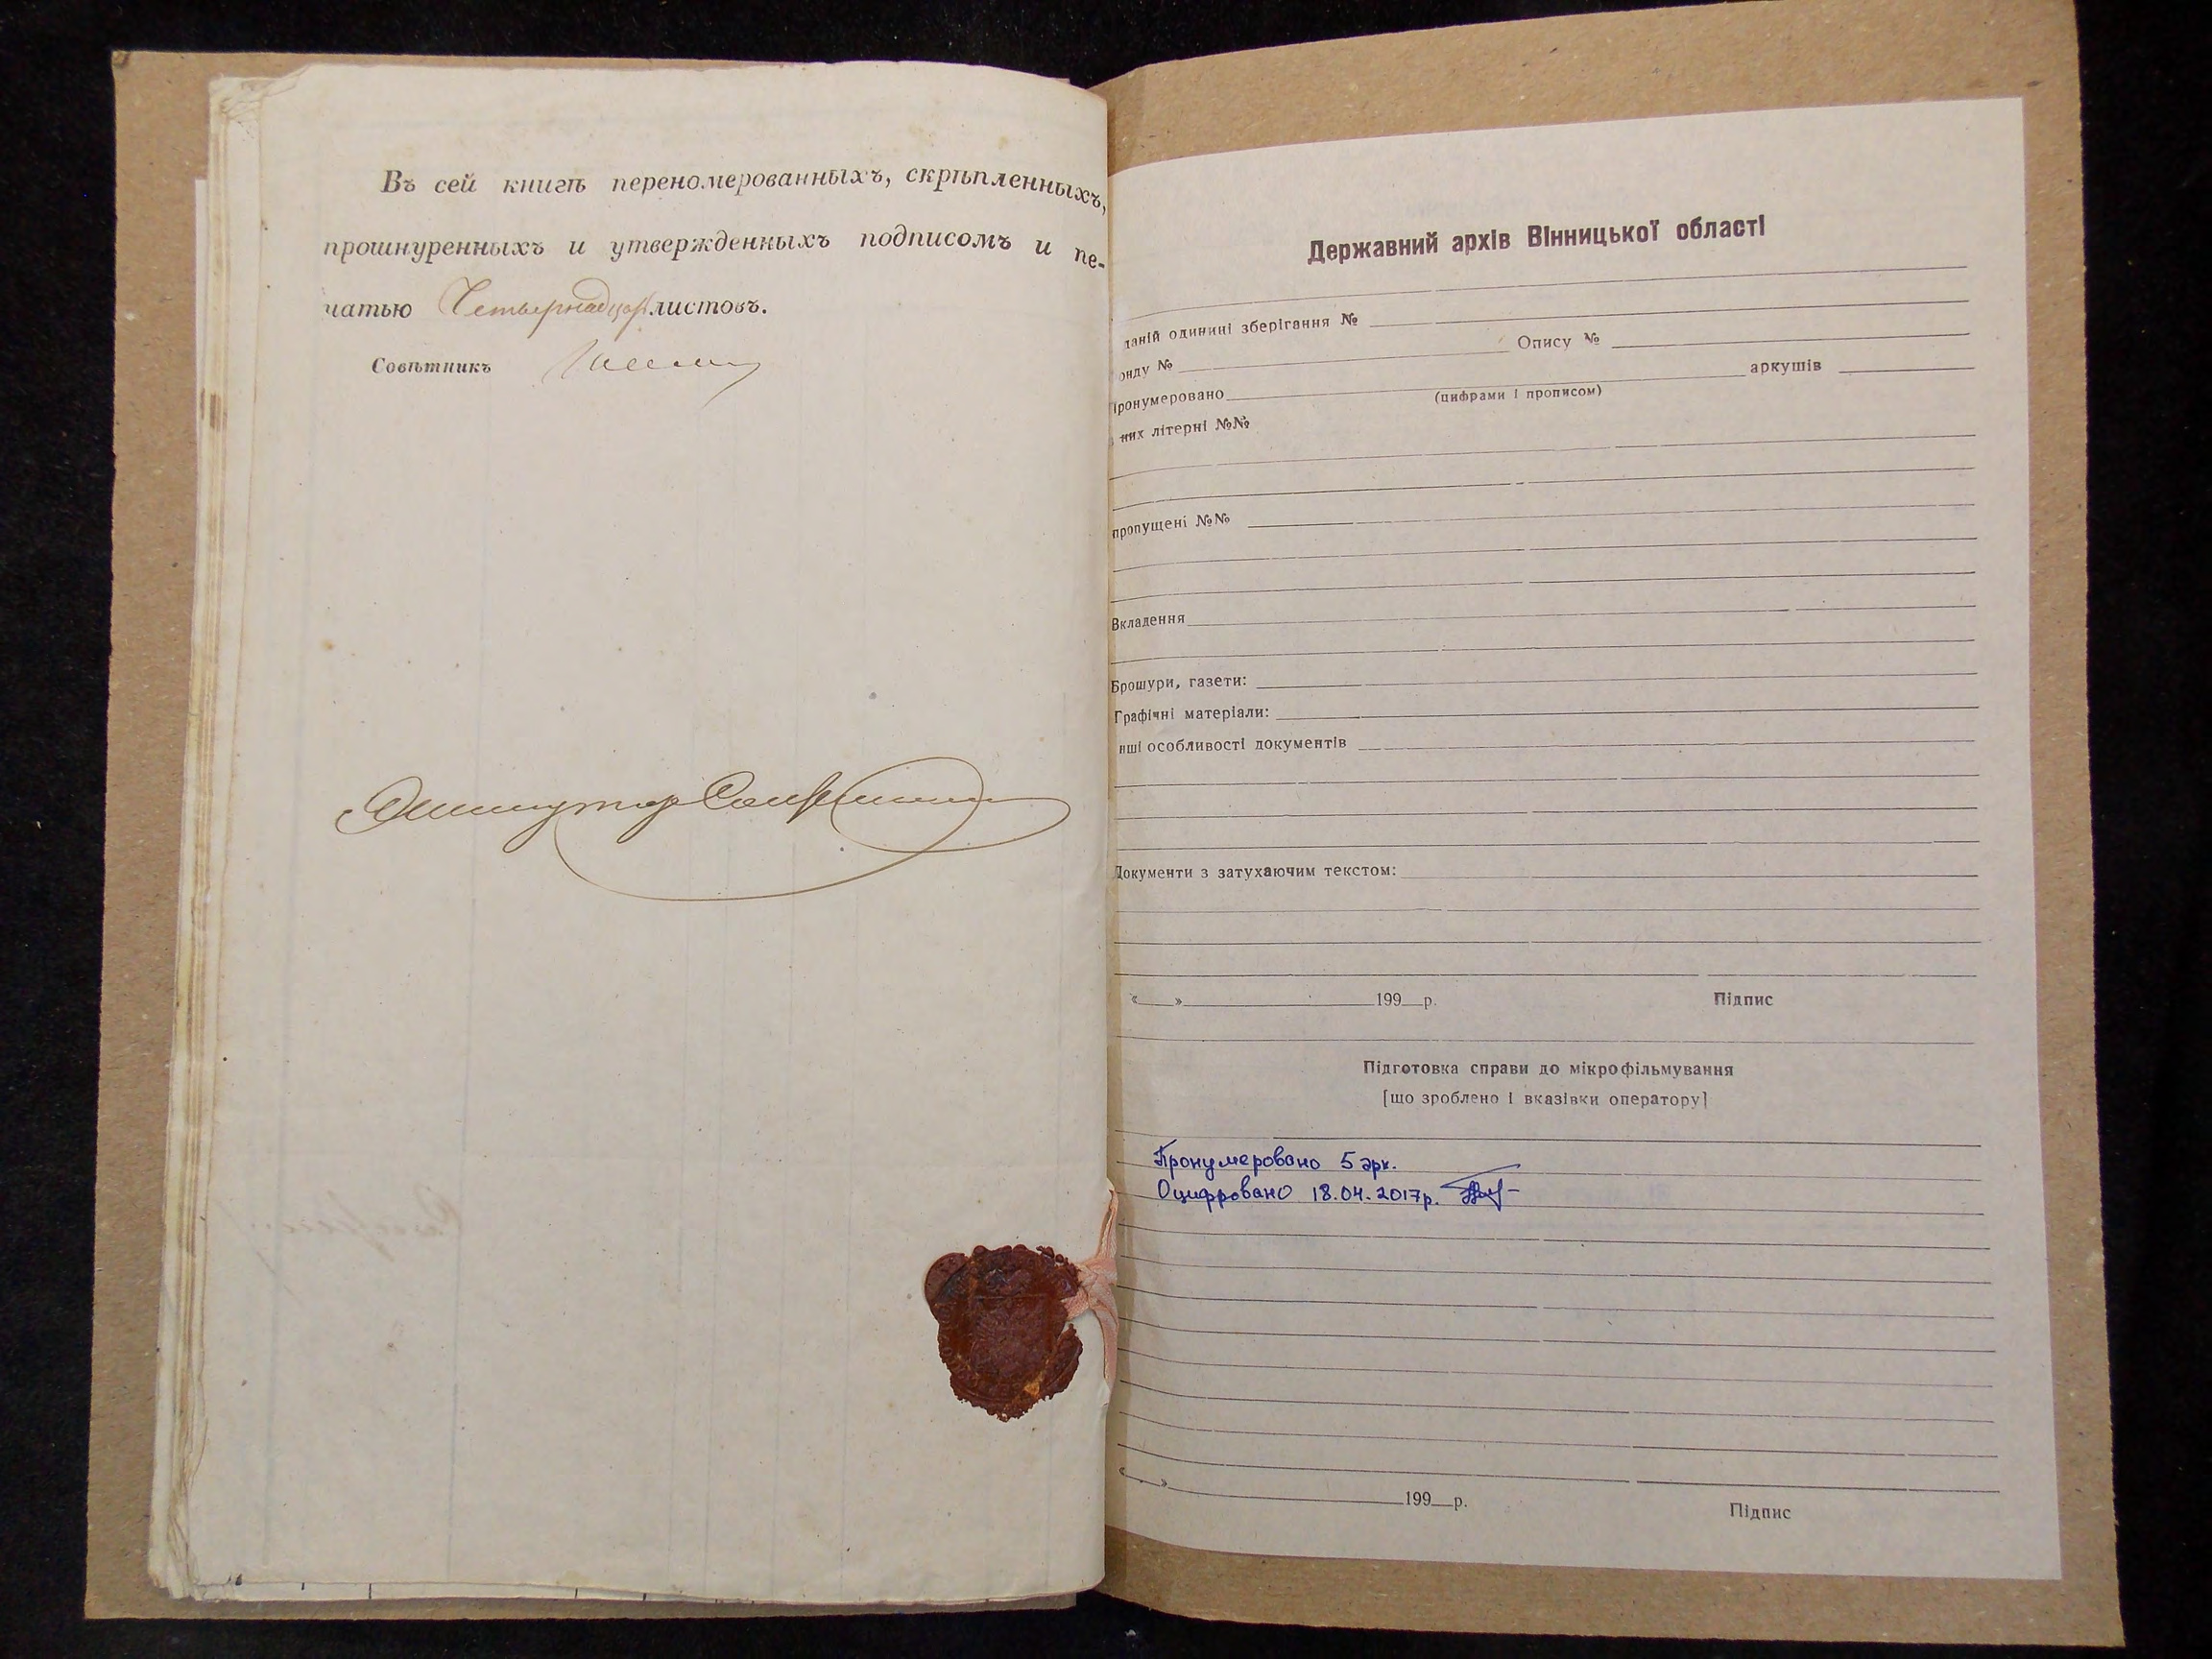 Въ сей книгѣ переномерованныхъ, скрѣпленныхъ,
прошнуренныхъ и утвержденныхъ подписомъ и пе-
чатью листовъ.
Совѣтникъ
Державний архів Вінницької області
даній одиниці зберігання №
онду № Опису №
пронумеровано аркушів
(цифрами і прописом)
них літерні №№
пропущені №№
Вкладення
Брошури, газети:
Графічні матеріали:
нші особливості документів
Документи з затухаючим текстом:
« » 199 р. Підпис
Підготовка справи до мікрофільмування
[що зроблено і вказівки оператору]
Пронумеровано 5 арк.
Оцифровано 18.04.2017р.
« » 199 р. Підпис